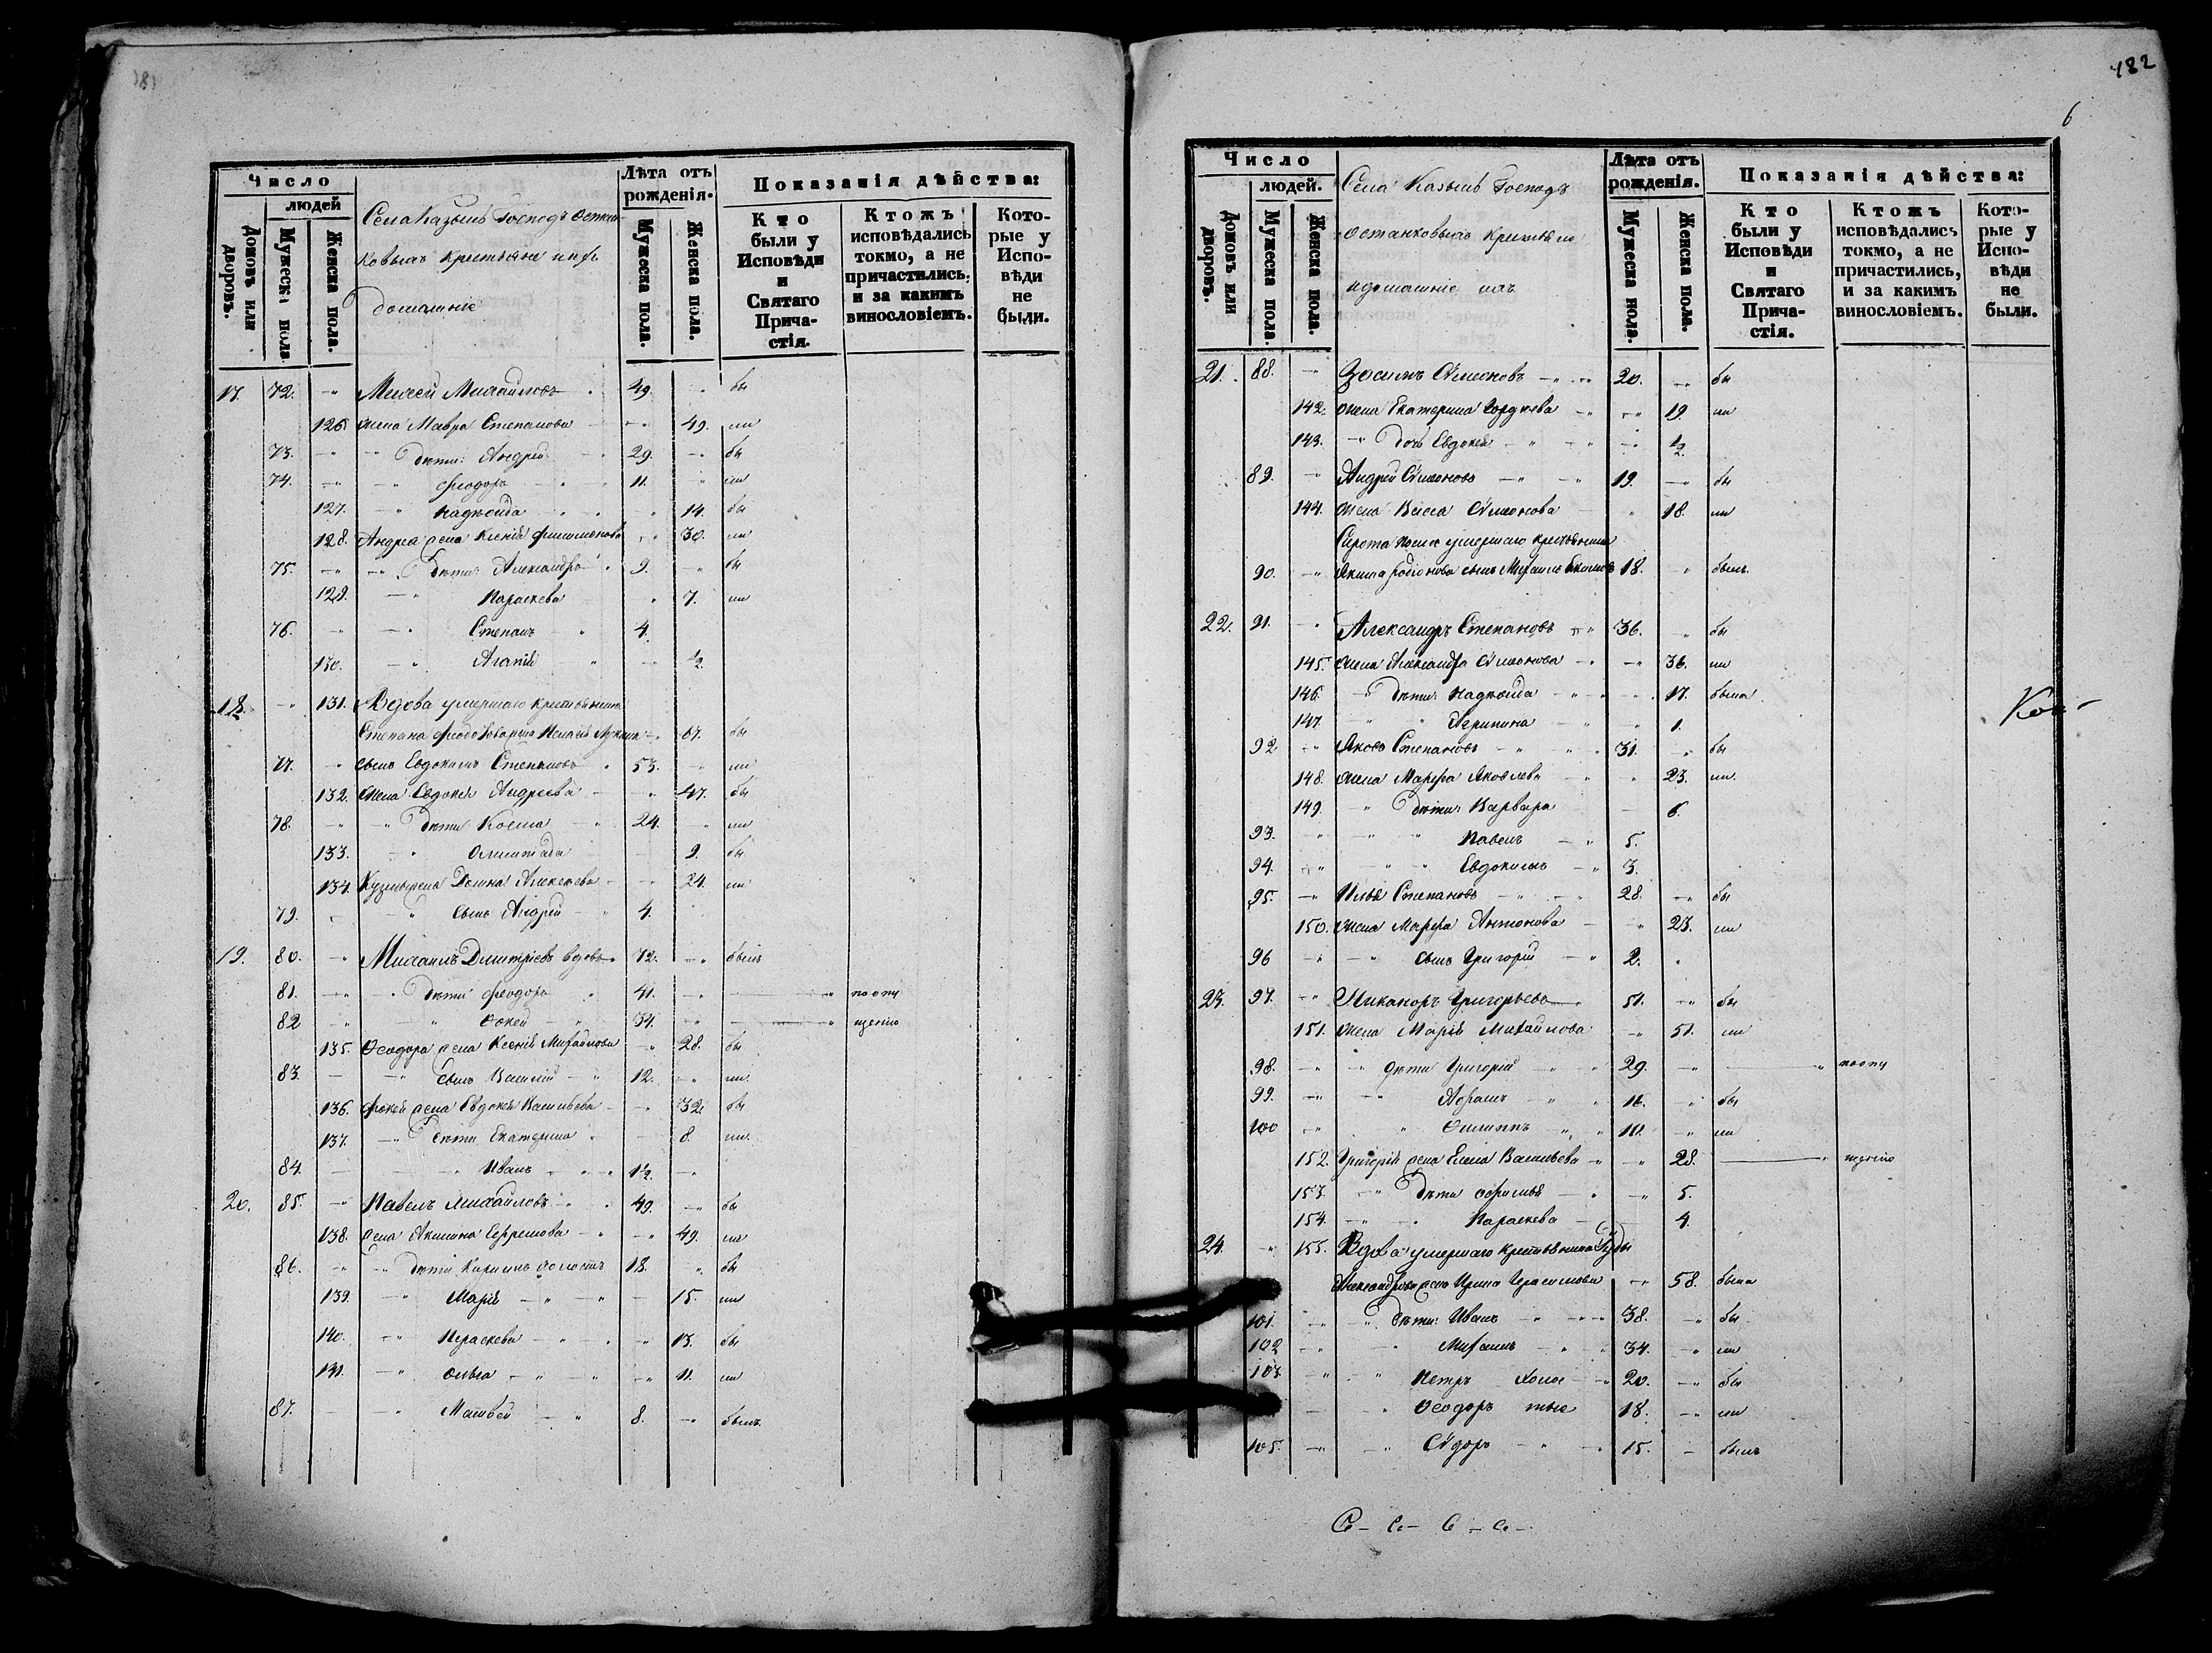 181
Число
людей
Домовъ или дворовъ.
Мужеска пола.
Женска пола.
Села Казыль Господъ Остан-
ковыхъ крестьяне и их
домашніе
Лѣта отъ рожденія.
Мужеска пола.
Женска пола.
Показанія дѣйства:
Кто были у Исповѣди и Святаго Причастія.
Ктожъ исповѣдались токмо, а не причастились, и за какимъ винословіемъ.
Которые у Исповѣди не были.
17. 72. Моисей Михайловъ 49. бы
126. жена Мавра Степанова 49. ли
73. дѣти: Андрей 29. бы
74. Феодоръ 11. ли
127. Надежда 14. бы
128. Андрея жена Ксенія 30. ли
75. дѣти: Александръ 9. бы
129. Параскева 7. ли
76. Степанъ 4.
130. Агапія ½
18. 131. Вдова умершаго крестьянина
Степана 67. бы
77. сынъ Евдокимъ Степановъ 53. ли
132. жена Евдокія Андреева 47. бы
78. дѣти Косма 24. ли
133. Олимпіада 9. бы
134. Кузмы жена Домна Алексѣева 24. ли
79. сынъ Андрей 4.
19. 80. Михаилъ Дмитріевъ вдовъ 72. былъ
81. дѣти Феодоръ 41. по опу
82 Фокей 34. щенію
135. Феодора жена Ксенія Михайлова 28. бы
83. сынъ Василій 12. ли
136. Фокея жена Евдокія Васильева 32. бы
137. дѣти Екатерина 8. ли
84. Иванъ 1½
20. 85. Павелъ Михайловъ 49. бы
138. жена Акилина Ефремова 49. ли
86. дѣти Кириллъ холостъ 18. бы
139. Марія 15. ли
140. Параскева 13. бы
141. Ольга 11. ли
87. Матвей 8. былъ
182
6
Число
людей.
Домовъ или дворовъ.
Мужеска пола.
Женска пола.
Села Казыль Господъ
Останковыхъ крестьяне
и домашніе ихъ
Лѣта отъ рожденія.
Мужеска пола.
Женска пола.
Показанія дѣйства:
Кто были у Исповѣди и Святаго Причастія.
Ктожъ исповѣдались токмо, а не причастились, и за какимъ винословіемъ.
Которые у Исповѣди не были.
21. 88. Зосимъ Сѵмеоновъ 20. бы
142. жена Екатерина Гордѣева 19 ли
143. дочь Евдокія ½
89. Андрей Сѵмеоновъ 19. бы
144. жена Васса Сѵмеонова 18. ли
Сирота после умершаго крестьянина
90. Якима Родіонова сынъ Михаилъ 18. былъ
22. 91. Александръ Степановъ 36. бы
145. жена Александра Сѵмеонова 36. ли
146. дѣти: Надежда 17. была
147. Агрипина 1.
92 Яковъ Степановъ 31. бы
148. жена Марфа Яковлева 23. ли
149. дѣти: Варвара 6.
93. Павелъ 5.
94. Евдокимъ 3.
95. Илья Степановъ 28. бы
150. жена Марфа Антонова 23. ли
96 сынъ Григорій 2.
23. 97. Никаноръ Григорьевъ 51. бы
151. жена Марія Михайлова 51. ли
98. дѣти Григорій 29. по опу
99. Абрамъ 16. бы
100 Филиппъ 10. ли
152. Григорія жена Елена Васильева 28. щенію
153. дѣти 5.
154. Параскева 4.
24. 155. Вдова умершаго крестьянина
Александрова жена Ирина Герасимова 58. была
101. дѣти: Иванъ 38. бы
102 Михаилъ 34. ли
103 Петръ холос 20. бы
Феодоръ тые 18. ли
105. Сѵдоръ 15. былъ